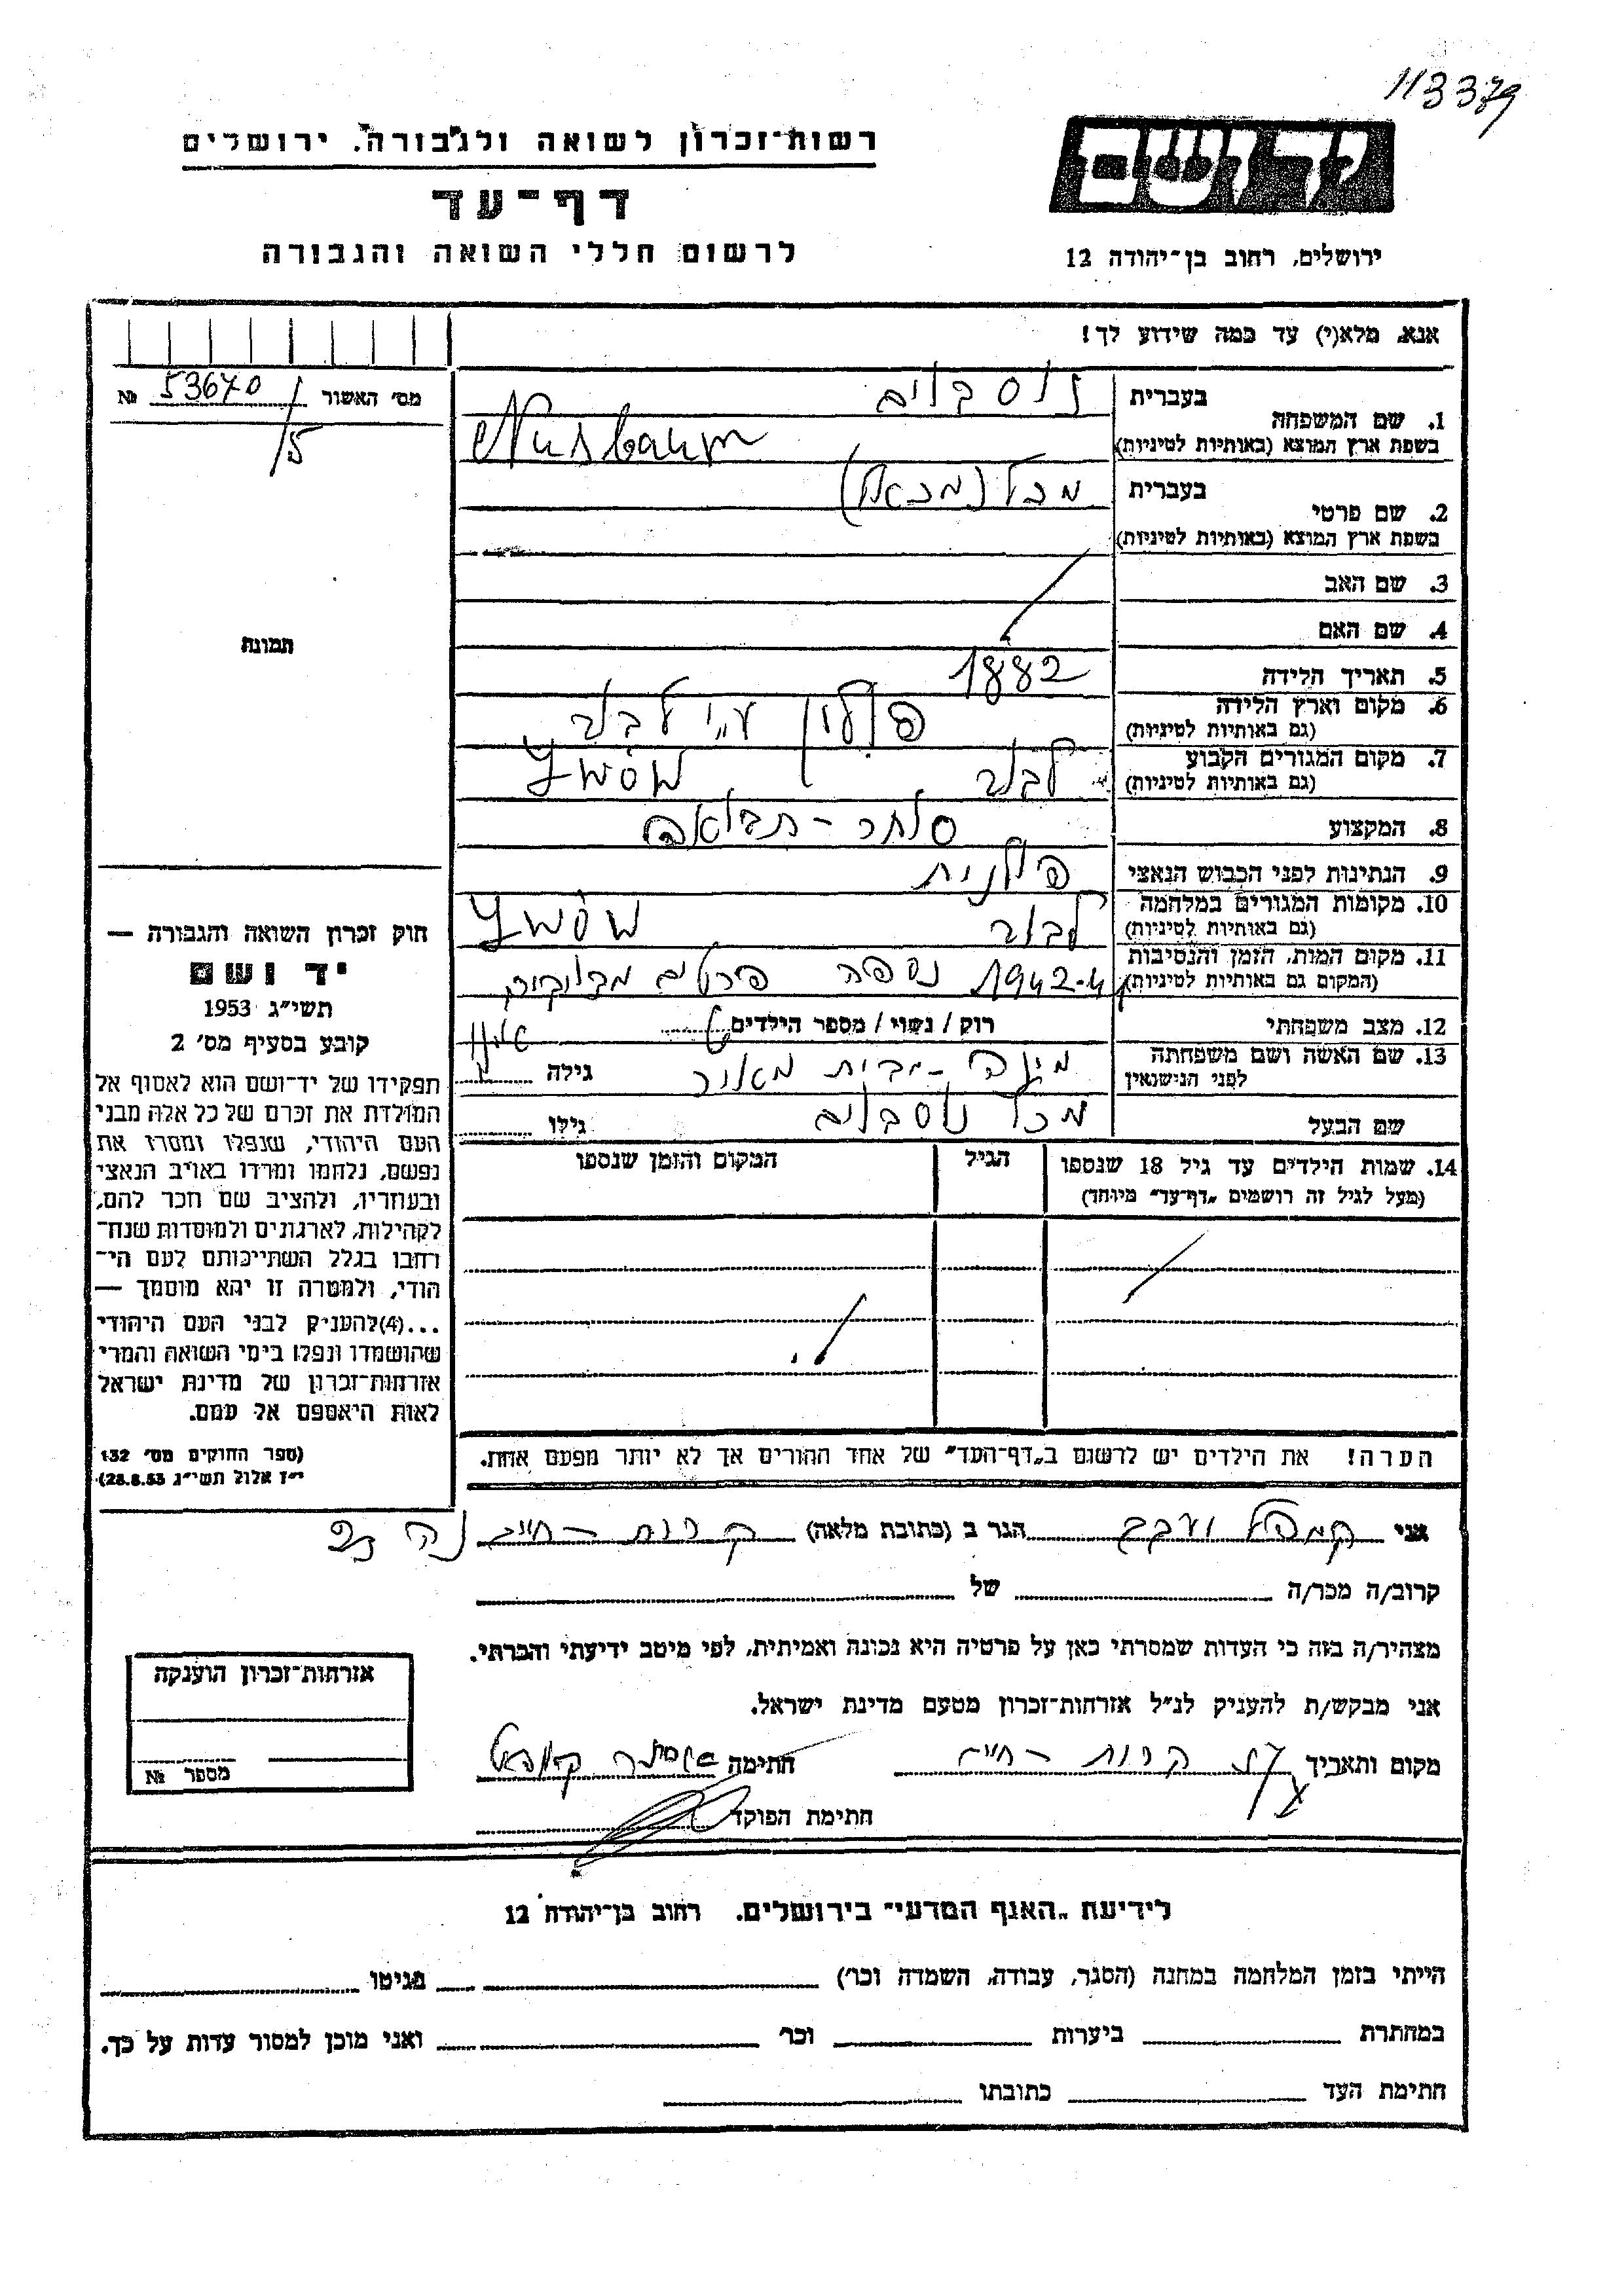 113379
יד ושם
ירושלים, רחוב בן־יהודה 12
רשות־זכרון לשואה ולגבורה, ירושלים
דף־עד
לרשום חללי השואה והגבורה
אנא, מלא(י) עד כמה שידוע לך!
מס׳ האשור 53670 №
/5
תמונה
1. שם המשפחה בעברית נוסבוים
בשפת ארץ המוצא (באותיות לטיניות) Nusbaum
2. שם פרטי בעברית מכל (מכאל)
בשפת ארץ המוצא (באותיות לטיניות)
3. שם האב
4. שם האם
5. תאריך הלידה 1882
6. מקום וארץ הלידה פולין ע״י לבוב
(גם באותיות לטיניות)
7. מקום המגורים הקבוע לבוב Lwów
(גם באותיות לטיניות)
8. המקצוע סוחר - תבואה
9. הנתינות לפני הכבוש הנאצי פולנית
10. מקומות המגורים במלחמה לבוב Lwów
(גם באותיות לטיניות)
11. מקום המות, הזמן והנסיבות 1942 נספה פרטים
(המקום גם באותיות לטיניות)
12. מצב משפחתי רוק / נשוי / מספר הילדים
13. שם האשה ושם משפחתה מבית גילה
לפני הנישואין
שם הבעל מכל נוסבוים גילו
14. שמות הילדים עד גיל 18 שנספו הגיל המקום והזמן שנספו
(מעל לגיל זה רושמים „דף־עד״ מיוחד)
הערה! את הילדים יש לרשום ב„דף־העד״ של אחד ההורים אך לא יותר מפעם אחת.
חוק זכרון השואה והגבורה —
יד ושם
תשי״ג 1953
קובע בסעיף מס׳ 2
תפקידו של יד־ושם הוא לאסוף אל
המולדת את זכרם של כל אלה מבני
העם היהודי, שנפלו ומסרו את
נפשם, נלחמו ומרדו באויב הנאצי
ובעוזריו, ולהציב שם וזכר להם,
לקהילות, לארגונים ולמוסדות שנח־
רחבו בגלל השתייכותם לעם הי־
הודי, ולמטרה זו יהא מוסמך —
...(4) להעניק לבני העם היהודי
שהושמדו ונפלו בימי השואה והמרי
אזרחות־זכרון של מדינת ישראל
לאות היאספם אל עמם.
(ספר החוקים מס׳ 132
י״ז אלול תשי״ג 28.8.53)
אני הגר ב (כתובת מלאה) קרית - חיים
קרוב/ה מכר/ה של
מצהיר/ה בזה כי העדות שמסרתי כאן על פרטיה היא נכונה ואמיתית, לפי מיטב ידיעתי והכרתי.
אני מבקש/ת להעניק לנ״ל אזרחות־זכרון מטעם מדינת ישראל.
מקום ותאריך קרית - חיים חתימה אסתר
חתימת הפוקד
אזרחות־זכרון הוענקה
מספר №
לידיעת „האגף המדעי״ בירושלים, רחוב בן־יהודה 12
הייתי בזמן המלחמה במחנה (הסגר, עבודה, השמדה וכו׳) בגיטו
במחתרת ביערות וכו׳ ואני מוכן למסור עדות על כך.
חתימת העד כתובתו